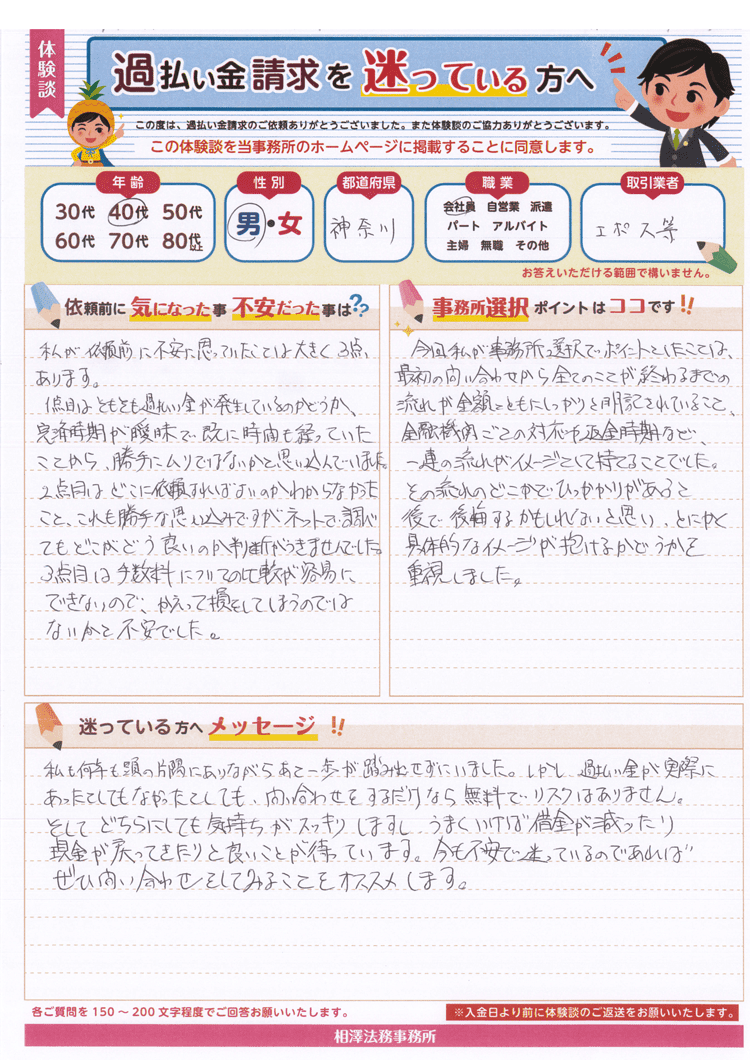 体験談
過払い金請求を迷っている方へ
この度は、過払い金請求のご依頼ありがとうございました。また体験談のご協力ありがとうございます。
この体験談を当事務所のホームページに掲載することに同意します。
年齢
30代 40代 50代
60代 70代 80代以上
性別
男・女
都道府県
神奈川
職業
会社員 自営業 派遣
パート アルバイト
主婦 無職 その他
取引業者
エポス等
お答えいただける範囲で構いません。
依頼前に気になった事 不安だった事は??
私が依頼前に不安に思っていたことは大きく3点
あります。
1点目はそもそも過払い金が発生しているのかどうか、
完済時期が曖昧で既に時間も経っていた
ことから、勝手にムリではないかと思い込んでいました。
2点目はどこに依頼すればよいのかわからなかった
こと、これも勝手な思い込みですがネットで調べ
てもどこがどう良いのか判断がつきませんでした。
3点目は手数料についての比較が容易に
できないので、かえって損をしてしまうのでは
ないかと不安でした。
事務所選択ポイントはココです!!
今回私が事務所選択でポイントとしたことは、
最初の問い合わせから全てのことが終わるまでの
流れが金額とともにしっかりと明記されていること、
金融機関ごとの対応や返金時期など、
一連の流れがイメージとして持てることでした。
その流れのどこかでひっかかりがあると
後で後悔するかもしれないと思い、とにかく
具体的なイメージが抱けるかどうかを
重視しました。
迷っている方へメッセージ!!
私も何年も頭の片隅にありながらあと一歩が踏み出せずにいました。しかし、過払い金が実際に
あったとしてもなかったとしても、問い合わせをするだけなら無料でリスクはありません。
そしてどちらにしても気持ちがスッキリしますし、うまくいけば借金が減ったり
現金が戻ってきたりと良いことが待っています。今も不安で迷っているのであれば
ぜひ問い合わせをしてみることをオススメします。
各ご質問を150～200文字程度でご回答お願いいたします。
※入金日より前に体験談のご返送をお願いいたします。
相澤法務事務所